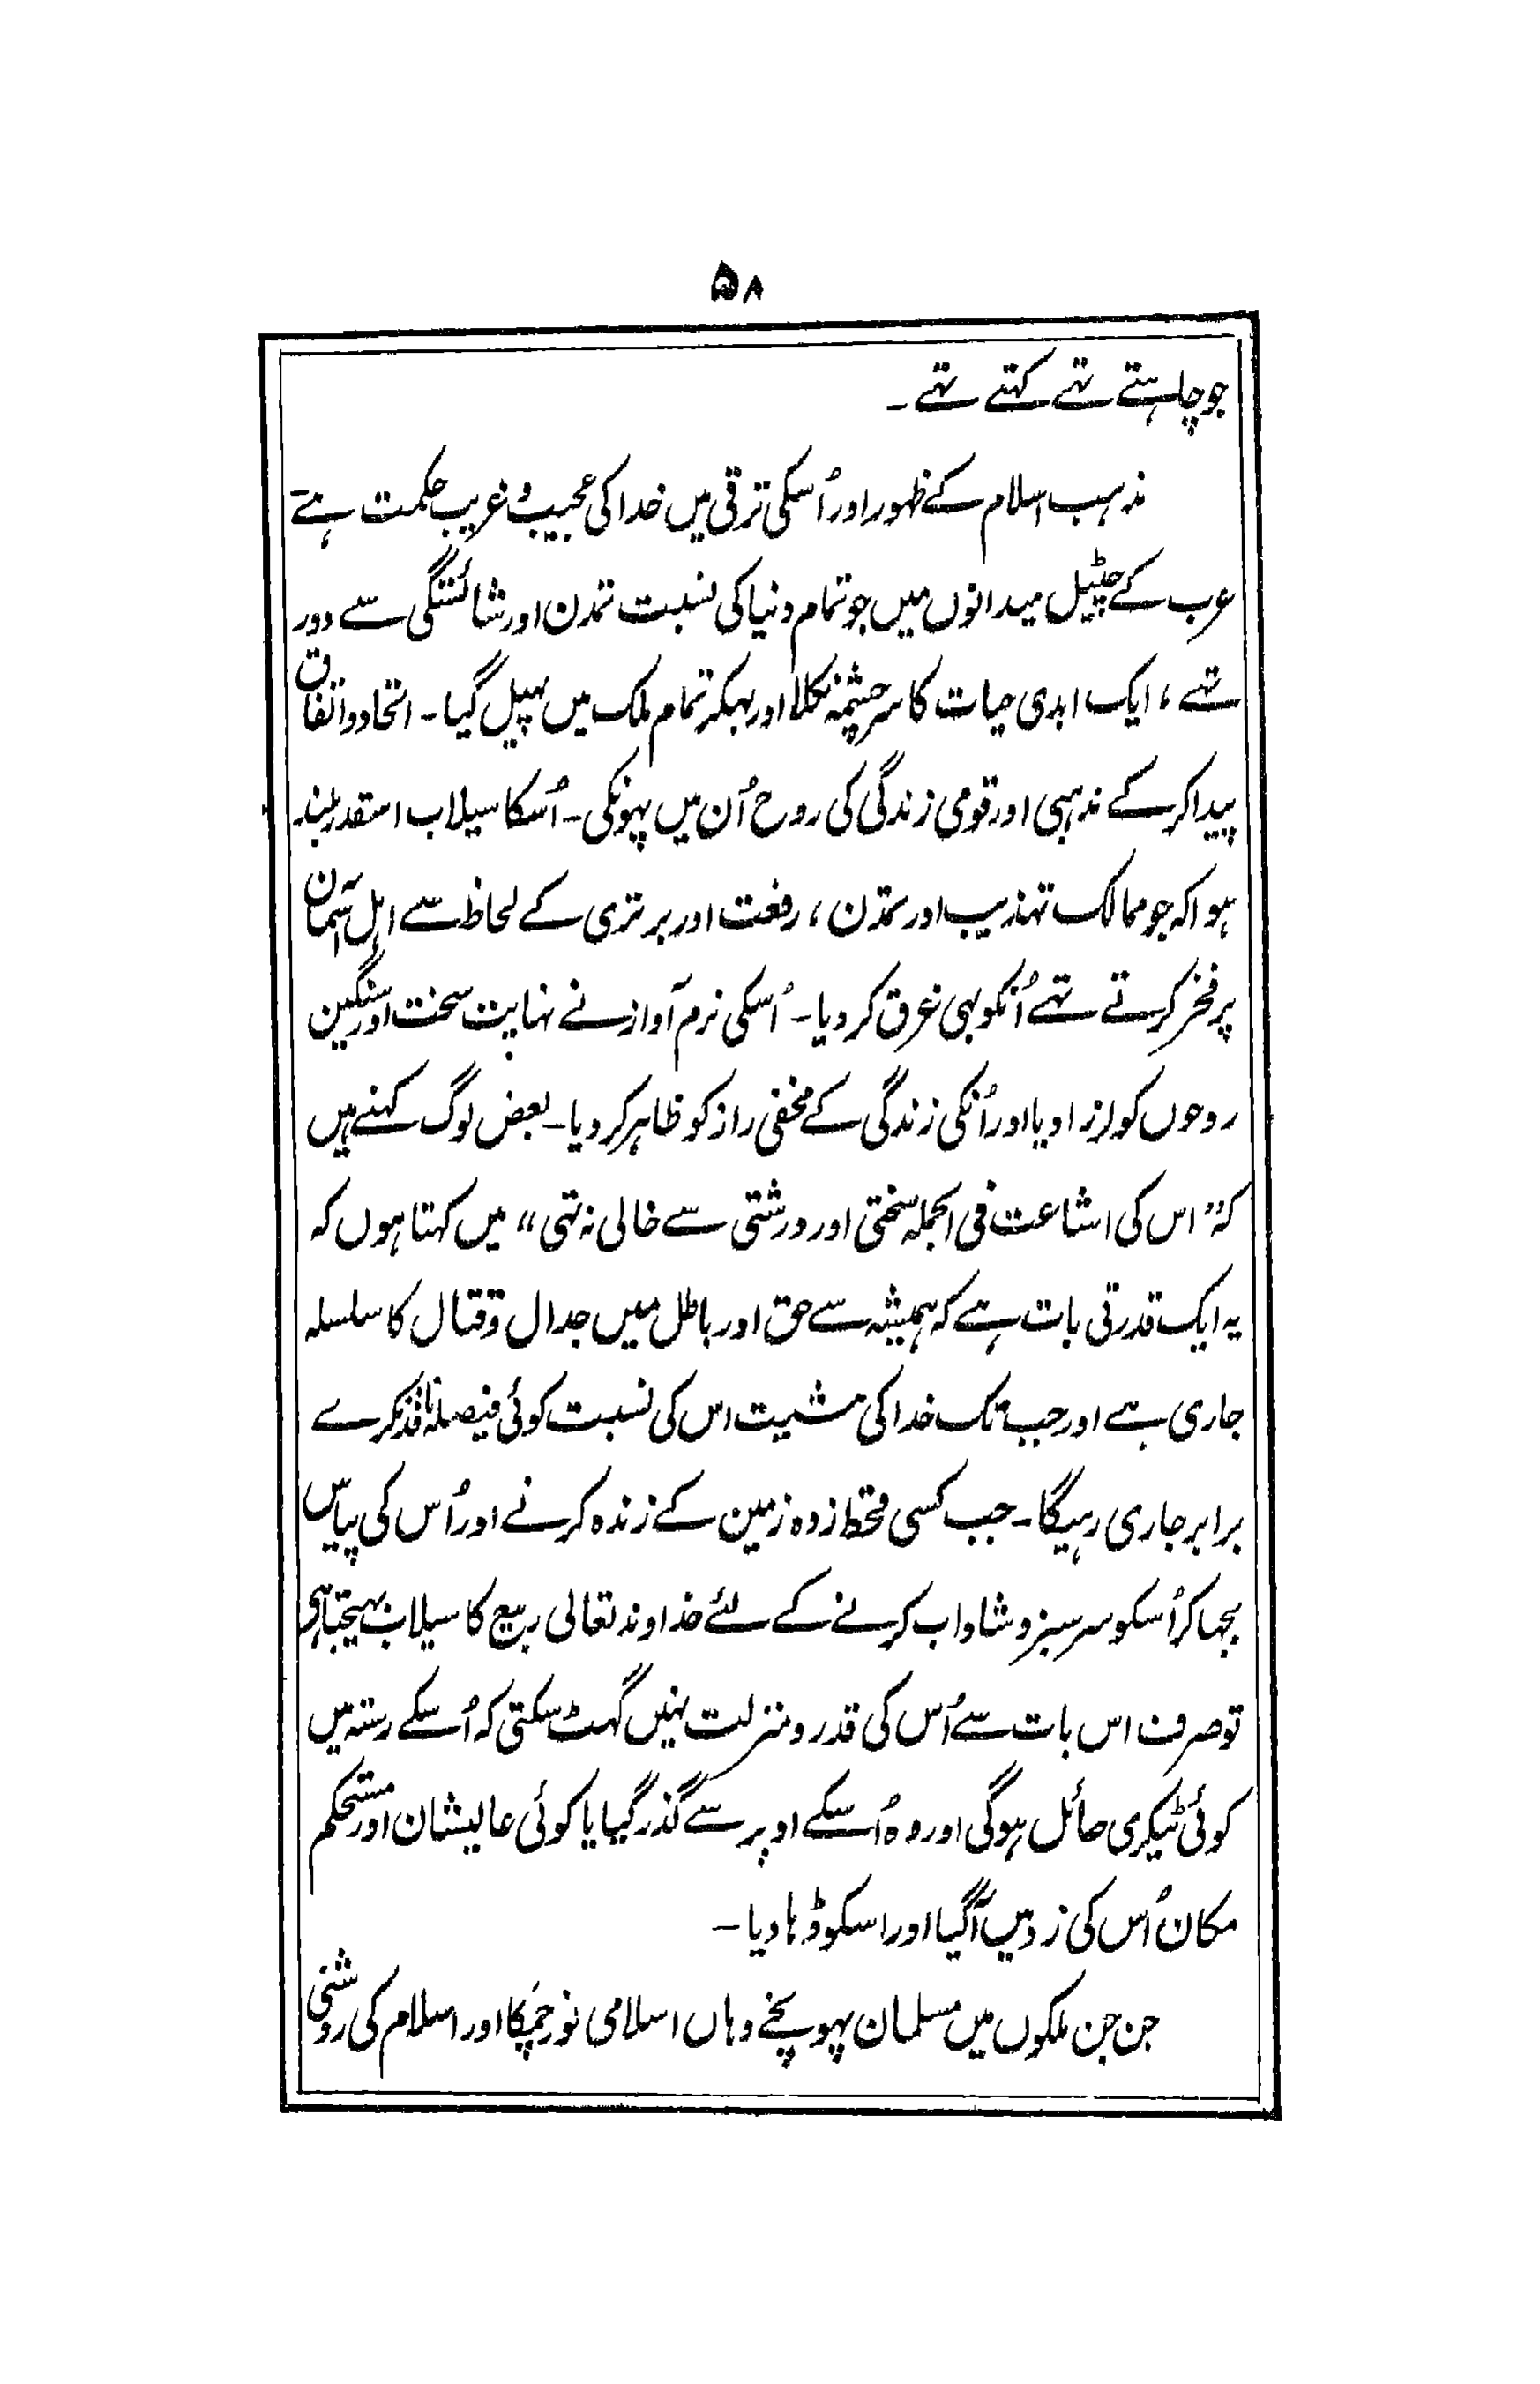 ۵۸
جو چاہتے تہے کہتے تہے ۔
مذہب اسلام کے ظہور اور اُسکی ترقی میں خدا کی عجیب و غریب حکمت ہے
عرب کے چٹیل میدانوں میں جو تمام دنیا کی نسبت تمدن اور شائستگی سے دور
تہے ، ایک ابدی حیات کا سرچشمہ نکلا اور بہکر تمام ملک میں پہیل گیا ۔ اتحاد و اتفاق
پیدا کر کے مذہبی اور قومی زندگی کی روح اُن میں پہونکی ۔ اُسکا سیلاب اسقدر بلند
ہوا کہ جو ممالک تہذیب اور تمدن ، رفعت اور برتری کے لحاظ سے اہل آسمان
پر فخر کرتے تہے اُنکو بہی غرق کر دیا ۔ اُسکی نرم آواز نے نہایت سخت اور سنگین
روحوں کو لرزا دیا اور اُنکی زندگی کے مخفی راز کو ظاہر کر دیا ۔ بعض لوگ کہتے ہیں
کہ ” اس کی اشاعت فی الجملہ سختی اور درشتی سے خالی نہ تہی “ میں کہتا ہوں کہ
یہ ایک قدرتی بات ہے کہ ہمیشہ سے حق اور باطل میں جدال و قتال کا سلسلہ
جاری ہے اور جب تک خدا کی مشیت اس کی نسبت کوئی فیصلہ نافذ نکرے
برابر جاری رہیگا ۔ جب کسی قحط زدہ زمین کے زندہ کرنے اور اُس کی پیاس
بجہا کر اُسکو سرسبز و شاداب کرنے کے لئے خداوند تعالی ربیع کا سیلاب بہیجتا ہی
تو صرف اس بات سے اُس کی قدر و منزلت نہیں گہٹ سکتی کہ اُسکے رستہ میں
کوئی ٹیکری حائل ہوگی اور وہ اُسکے اوپر سے گذر گیا یا کوئی عالیشان اور مستحکم
مکان اُس کی زد میں آگیا اور اسکو ڈہا دیا ۔
جن جن ملکوں میں مسلمان پہونچے وہاں اسلامی نور چمکا اور اسلام کی روشنی